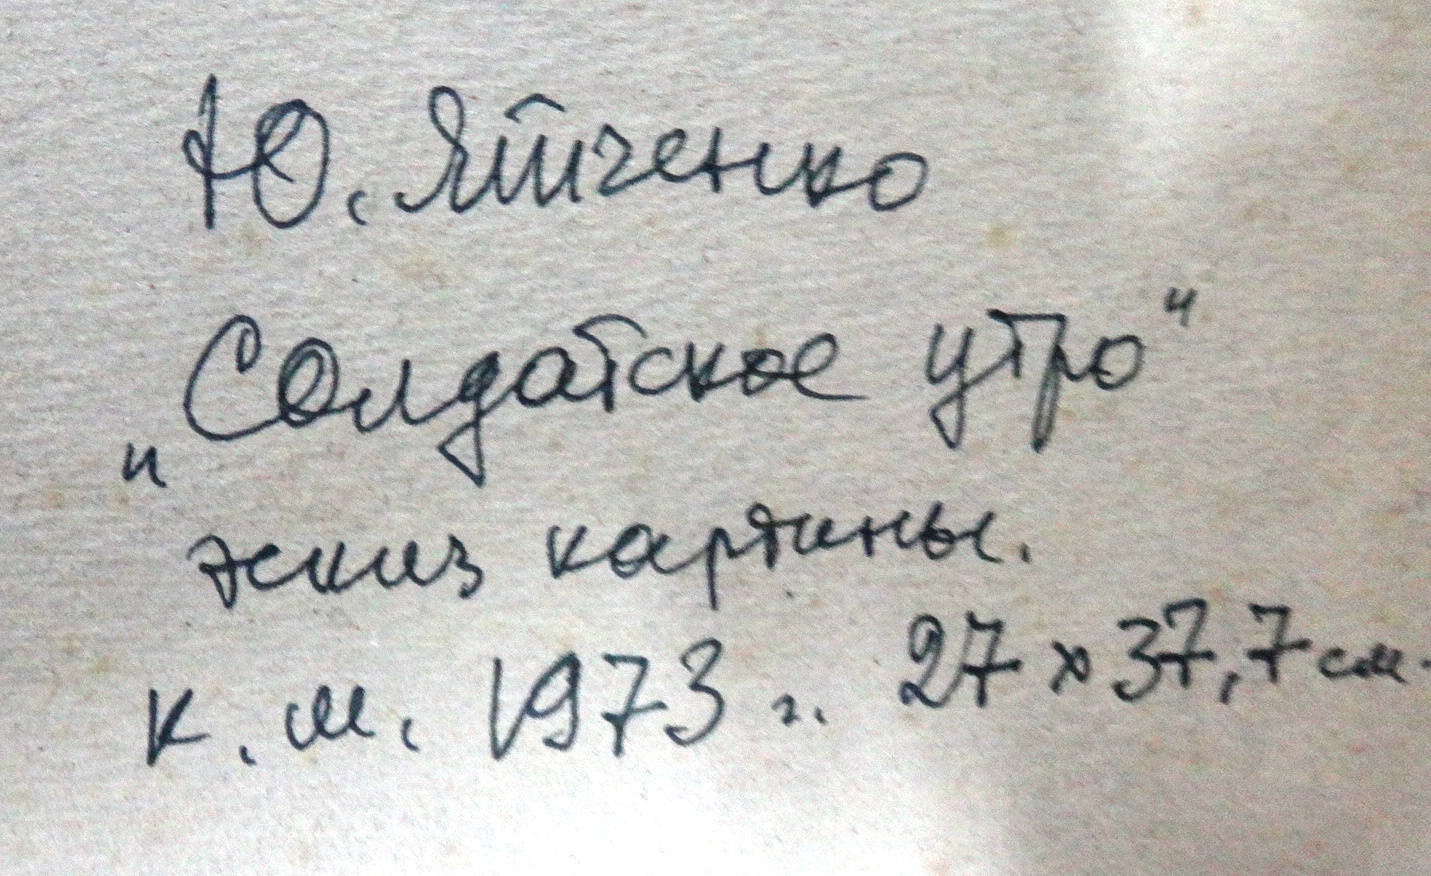 Ю. Ятченко
„Солдатское утро"
эскиз картины.
к. м. 1973 г. 27 x 37,7 см.